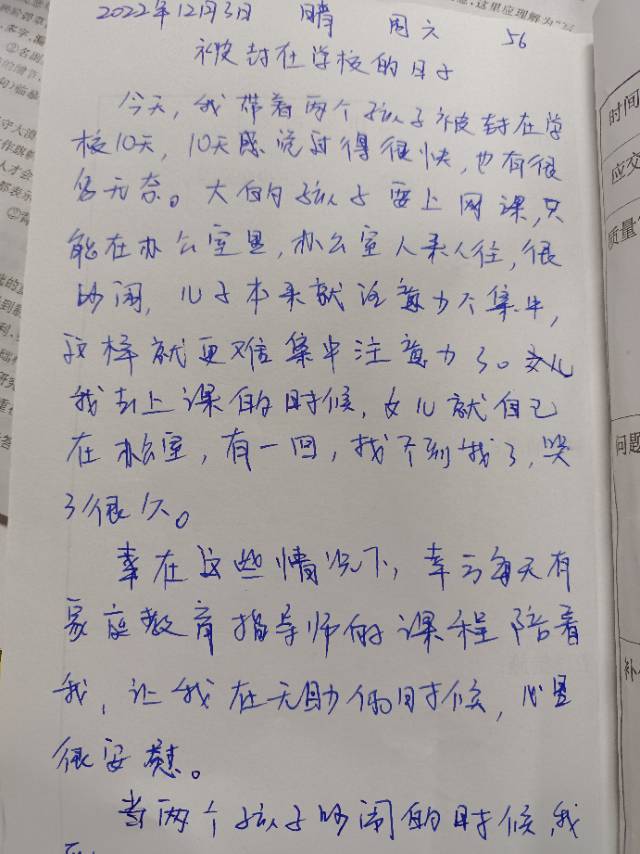 2022年12月3日 晴 周六 56
被封在学校的日子
今天,我带着两个孩子被封在学
校10天,10天感觉过得很快,也有很
多无奈。大的孩子要上网课,只
能在办公室里,办公室人来人往,很
吵闹,儿子本来就注意力不集中,
这样就更难集中注意力了。
我去上课的时候,女儿就自己
在办公室,有一回,找不到我了,哭
了很久。
在这些情况下,幸亏每天有
家庭教育指导师的课程陪着
我,让我在无助的时候,心里
很安慰。
当两个孩子吵闹的时候,我
时间
应交
质量
问题
补